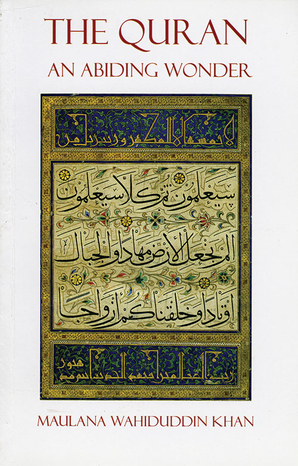 THE QURAN
AN ABIDING WONDER
سيعلمون ثم كلا سيعلمون
الم نجعل الارض مهادا والجبال
اوتادا وخلقناكم ازواجا
MAULANA WAHIDUDDIN KHAN